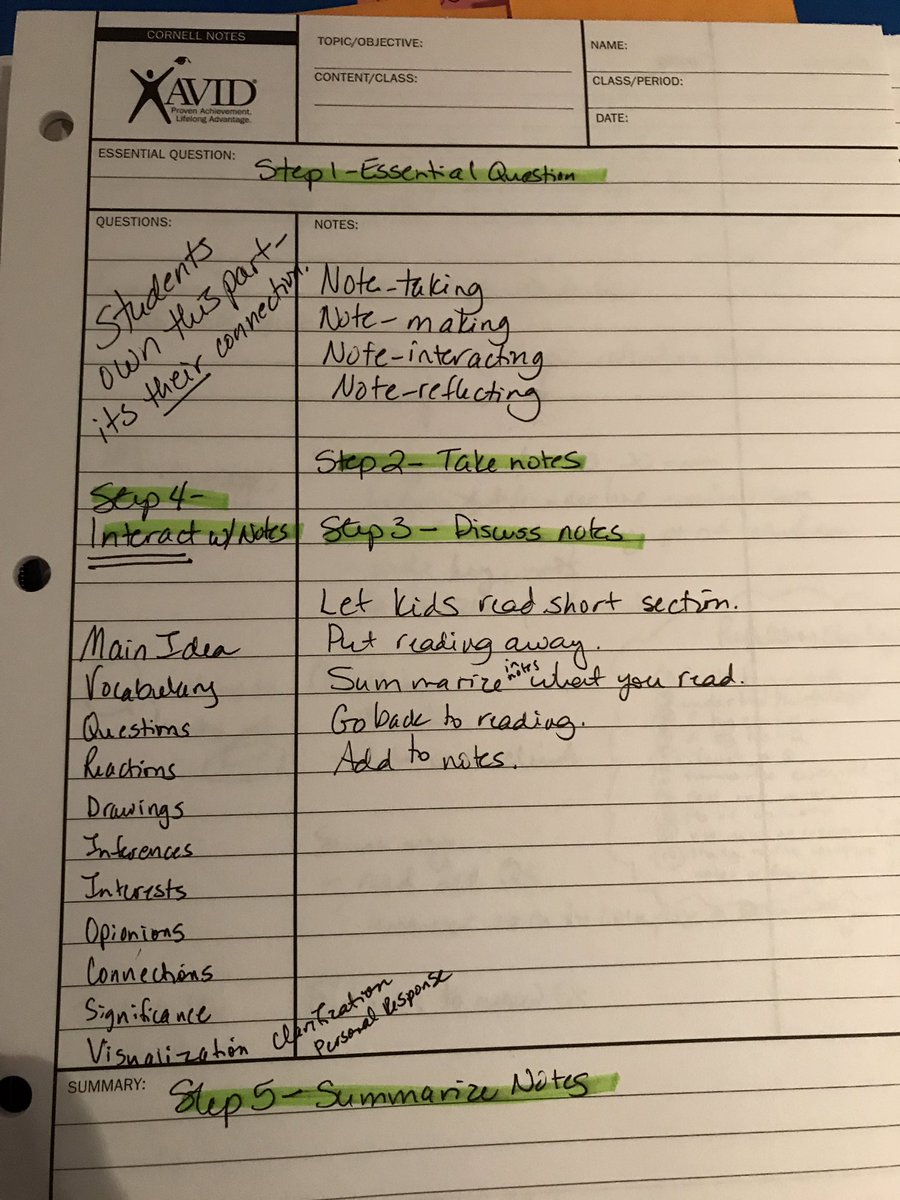 CORNELL NOTES
AVID®
Proven Achievement.
Lifelong Advantage.
TOPIC/OBJECTIVE:
CONTENT/CLASS:
NAME:
CLASS/PERIOD:
DATE:
ESSENTIAL QUESTION:
Step 1 - Essential Question
QUESTIONS:
Students
own this part -
its their connection.
Step 4 -
Interact w/ Notes
Main Idea
Vocabulary
Questions
Reactions
Drawings
Inferences
Interests
Opionions
Connections
Significance
Visualization
Clarification
Personal Response
NOTES:
Note-taking
Note-making
Note-interacting
Note-reflecting
Step 2 - Take notes
Step 3 - Discuss notes
Let kids read short section.
Put reading away.
Summarize in notes what you read.
Go back to reading.
Add to notes.
SUMMARY:
Step 5 - Summarize Notes